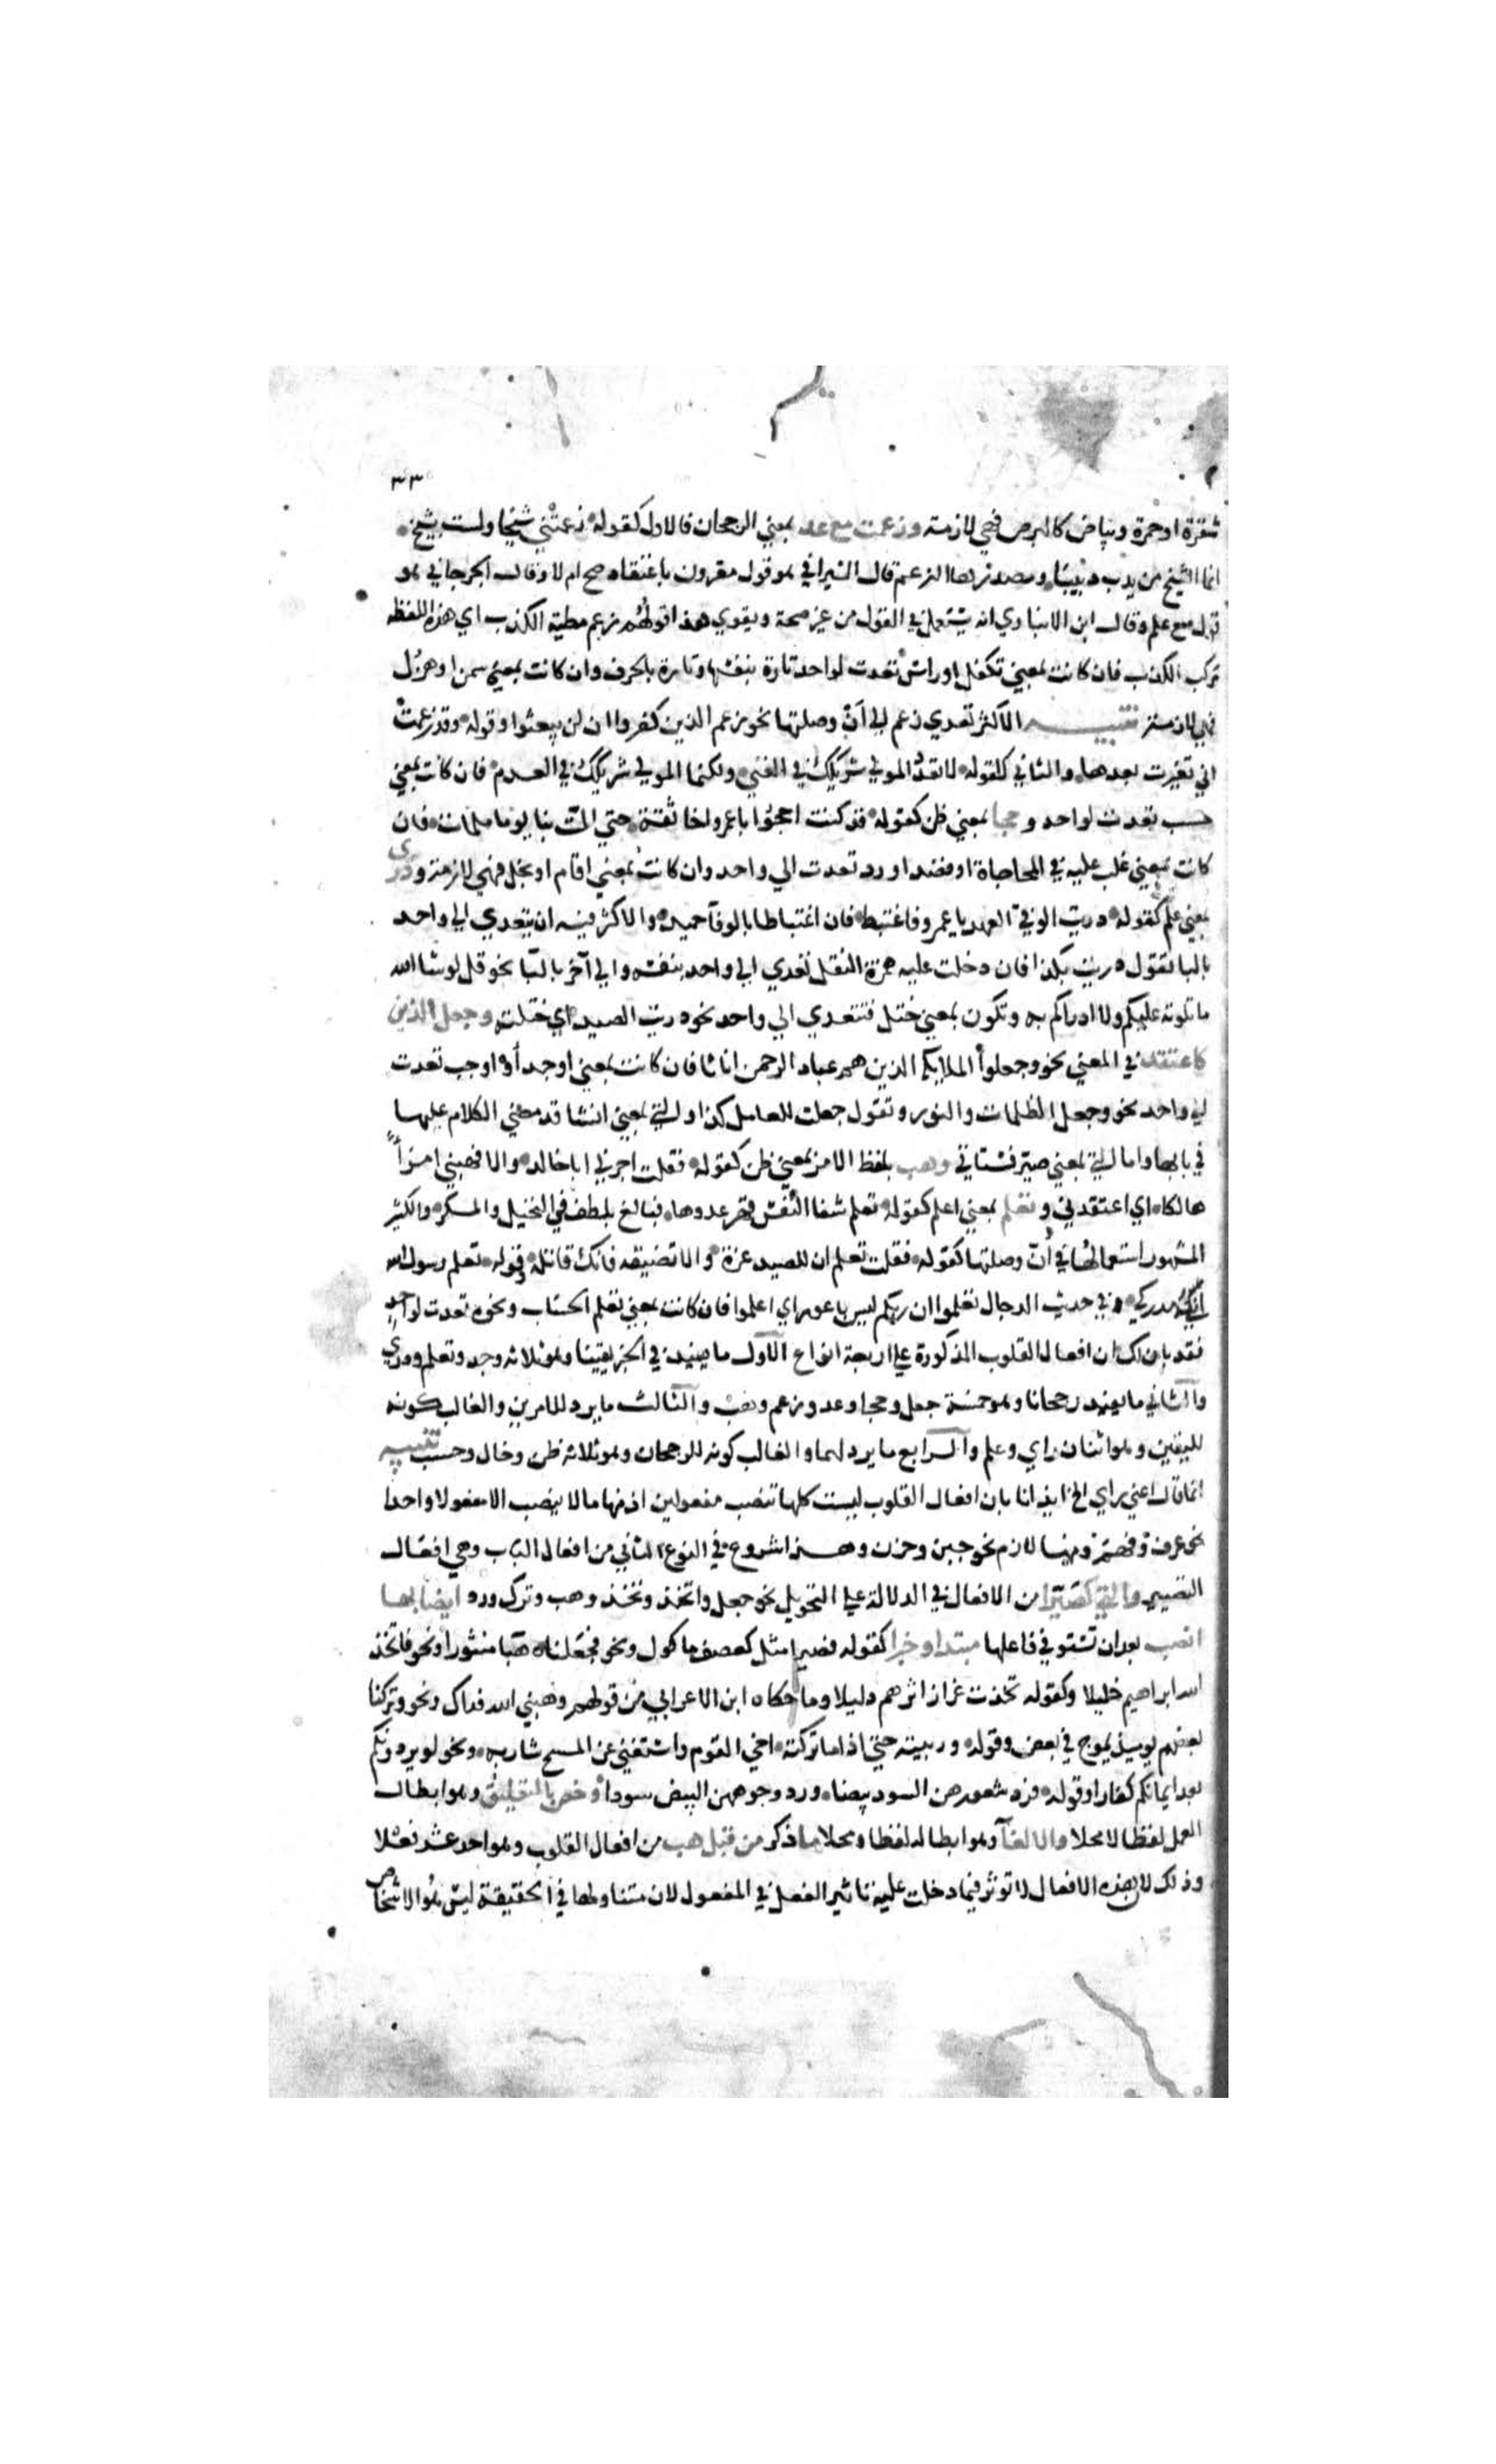 ٣٣
شقرة او حمرة وبياض كالبرص فهي لازمة وزعمت مع عد بمعني الرجحان فالاول كقوله زعمتني شيخا ولست بشيخ
انما الشيخ من يدب دبيبا ومصدر هذا الزعم قال السيرافي هو قول مقرون باعتقاد صح ام لا وقال الجرجاني هو
قول مع علم وقال ابن الانباري انه يستعمل في القول من غير صحة ويقوي هذا قولهم زعم مطية الكذب اي هذه اللفظة
مركب الكذب فان كانت بمعني تكفل او راس تعدت لواحد تارة بنفسها وتارة بالحرف وان كانت بمعني سمن او هزل
فهي لازمة تنبيه الاكثر تعدي زعم الي ان وصلتها نحو زعم الذين كفروا ان لن يبعثوا وقوله وقد زعمت
اني تغيرت بعدها والثاني كقوله لا تعدد المولي شريكك في الغني ولكنما المولي شريكك في العدم فان كانت بمعني
حسب تعدت لواحد وحجا بمعني ظن كقوله قد كنت احجوا با عمرو اخا ثقة حتي المت بنا يوما ملمات فان
كانت بمعني غلب عليه في المحاجاة او قصد او رد تعدت الي واحد وان كانت بمعني اقام او بخل فهي لازمة ودري
بمعني علم كقوله دريت الوفي العهد يا عمرو فاغتبط فان اغتباطا بالوفآ حميد والاكثر فيه ان يتعدي الي واحد
بالبا تقول دريت بكذا فان دخلت عليه همزة النقل تعدي الي واحد بنفسه والي آخر بالبا نحو قل لو شا الله
ما تلوته عليكم ولا ادراكم به وتكون بمعني ختل فتتعدي الي واحد نحو دريت الصيد اي ختلته وجعل اللذين
كاعتقد في المعني نحو وجعلوا الملايكة الذين هم عباد الرحمن اناثا فان كانت بمعني اوجد او اوجب تعدت
الي واحد نحو وجعل الظلمات والنور وتقول جعلت للعامل كذا والتي بمعني انشا قد مضي الكلام عليها
في بابها واما التي بمعني صير فستاتي وهب بلفظ الامر بمعني ظن كقوله فقلت اجرني ابا خالد والا فهبني امرأ
هالكا اي اعتقدني وتعلم بمعني اعلم كقوله تعلم شفا النفس قهر عدوها فبالغ بلطف في التحيل والمكر والكثير
المشهور استعمالها في ان وصلتها كقوله فقلت تعلم ان للصيد غرة والا تضيعه فانك قاتله وقوله تعلم رسول الله
انك مدركي وفي حديث الدجال تعلموا ان ربكم ليس باعور اي اعلموا فان كانت بمعني تعلم الحساب ونحوه تعدت لواحد
فقد بان لك ان افعال القلوب المذكورة علي اربعة انواع الاول ما يفيد في الخبر يقينا وهو ثلاثه وجد وتعلم ودري
والثاني ما يفيد رجحانا وهو خمسة جعل وحجا وعد وزعم وهب والثالث ما يرد للامرين والغالب كونه
لليقين وهو اثنان راي وعلم والرابع ما يرد لهما والغالب كونه للرجحان وهو ثلاثه ظن وخال وحسب تنبيه
انما قال اعني راي الخ ايذانا بان افعال القلوب ليست كلها تنصب مفعولين اذ منها ما لا ينصب الا مفعولا واحدا
نحو عرف وفهم ومنها لازم نحو جبن وحزن وهذا شروع في النوع الثاني من افعال الباب وهي افعال
التصيير والتي كصيرا من الافعال في الدلالة علي التحويل نحو جعل واتخذ وتخذ وهب وترك ورد ايضا بها
انصب بعد ان تستوفي فاعلها مبتدا وخبرا كقوله فصيروا مثل كعصف ماكول ونحو فجعلناه هبا منثورا ونحو فاتخذ
الله ابراهيم خليلا وكقوله تخذت غراز اثرهم دليلا وما حكاه ابن الاعرابي من قولهم وهبني الله فداك ونحو وتركنا
بعضهم يوميذ يموج في بعض وقوله وربيته حتي اذا ما تركته اخي القوم واستغني عن المسح شاربه ونحو لو يردونكم
بعد ايمانكم كفارا وقوله فرد شعورهن السود بيضا ورد وجوههن البيض سودا وخص بالتعليق وهو ابطال
العمل لفظا لا محلا والالغآ وهو ابطاله لفظا ومحلا ما ذكر من قبل هب من افعال القلوب وهو احد عشر فعلا
وذلك لان هذه الافعال لا توثر فيما دخلت عليه تاثير الفعل في المفعول لان متناولها في الحقيقة ليس هو الاشخاص